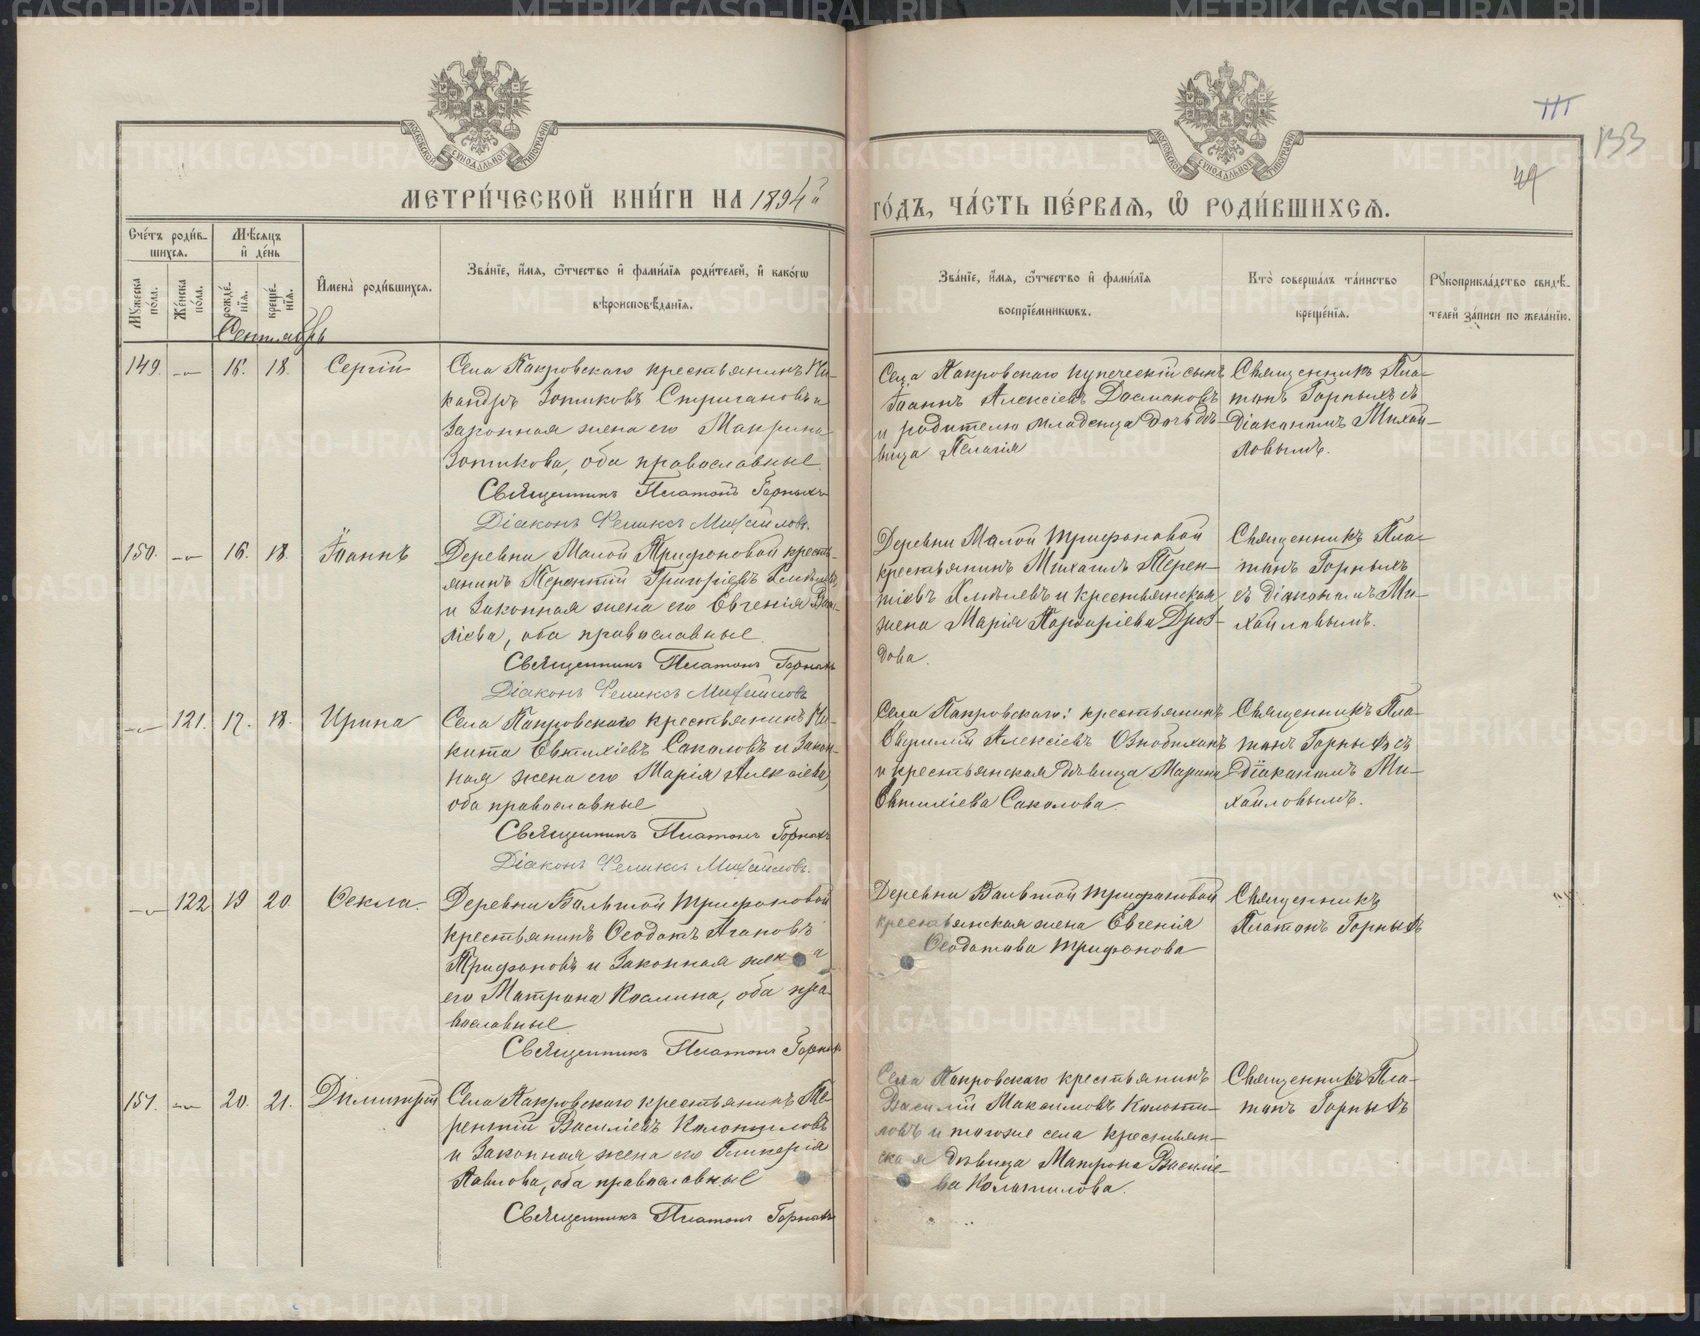 МЕТРИ́ЧЕСКОЙ КНИ́ГИ НА 1894й
ГО́ДЪ, ЧА́СТЬ ПЕ́РВАЯ, Ѡ҆ РОДИ́ВШИХСЯ.
133
Сче́тъ роди́в-
шихся.
Мѣсяцъ
и҆ де́нь
Му́жеска по́ла.
Же́нска по́ла.
рожде́-
нїя.
креще́-
нїя.
И҆мена̀ роди́вшихся.
Зва́нїе, и҆́мя, ѻ҆́тчество и҆ фами́лїя роди́телей, и҆ како́гѡ
вѣроисповѣ́данїя.
Зва́нїе, и҆́мя, ѻ҆́тчество и҆ фами́лїя
воспрїе́мниковъ.
Кто̀ соверша́лъ та́инство
креще́нїя.
Рꙋкоприкла́дство свидѣ́-
телей за́писи по жела́нїю.
Сентябрь
149. 16. 18. Сергій
Села Покровскаго крестьянинъ Ни-
кандръ Зотиковъ Стригановъ и
законная жена его Макрина
Зотикова, оба православные
Священникъ Платонъ Горныхъ
Діаконъ Феликсъ Михайловъ.
Села Покровскаго купеческій сынъ
Іоаннъ Алексіевъ
и родителю младенца дочь дѣ-
вица Пелагія
Священникъ Пла-
тонъ Горныхъ съ
діакономъ Михай-
ловымъ.
150. 16. 18. Іоаннъ
Деревни Малой Трифоновой кресть-
янинъ Терентій Григоріевъ
и законная жена его Евгенія Васи-
ліева, оба православные
Священникъ Платонъ Горныхъ
Діаконъ Феликсъ Михайловъ
Деревни Малой Трифоновой
крестьянинъ Михаилъ Терен-
тіевъ и крестьянская
жена Марія Порфиріева Дроз-
дова.
Священникъ Пла-
тонъ Горныхъ
съ діакономъ Ми-
хайловымъ.
121. 17. 18. Ирина
Села Покровскаго крестьянинъ Ни-
кита Евтихіевъ Соколовъ и закон-
ная жена его Марія Алексіева,
оба православные
Священникъ Платонъ Горныхъ
Діаконъ Феликсъ Михайловъ.
Села Покровскаго: крестьянинъ
Алексіевъ Ознобихинъ
и крестьянская дѣвица Марина
Евтихіева Соколова
Священникъ Пла-
тонъ Горныхъ съ
діакономъ Ми-
хайловымъ.
122 19 20 Ѳекла.
Деревни Большой Трифоновой
крестьянинъ Ѳеодотъ Агаповъ
Трифоновъ и законная жена
его Матрона Космина, оба пра-
вославные
Священникъ Платонъ Горныхъ
Деревни Большой Трифоновой
крестьянская жена Евгенія
Ѳеодотова Трифонова
Священникъ
Платонъ Горныхъ
151. 20. 21. Димитрій
Села Покровскаго крестьянинъ Те-
рентій Василіевъ Колотиловъ
и законная жена его Гликерія
Павлова, оба православные
Священникъ Платонъ Горныхъ
Села Покровскаго крестьянинъ
Василій Максимовъ Колоти-
ловъ и тогоже села крестьян-
ская дѣвица Матрона Василіе-
ва Колотилова.
Священникъ Пла-
тонъ Горныхъ
METRIKI.GASO-URAL.RU